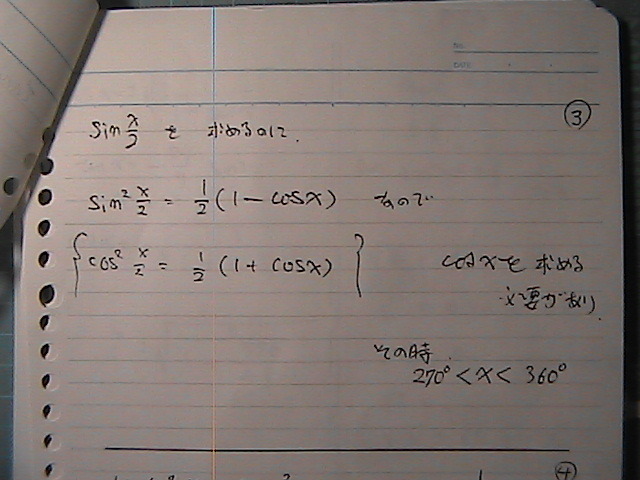 NO.
DATE
③
sin x/2 を 求めるのに.
sin² x/2 = 1/2 (1 - cosx) なので
{cos² x/2 = 1/2 (1 + cosx)} cosxを求める
必要があり
その時.
270° < x < 360°
④